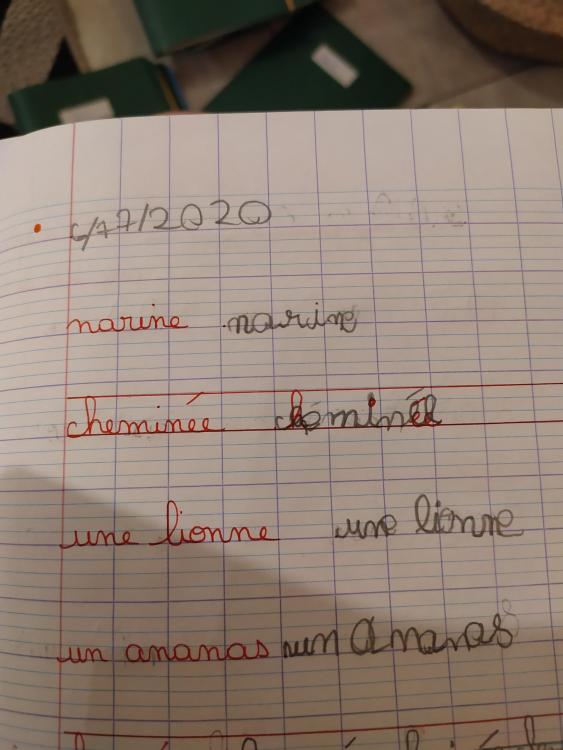 narine narine
cheminée cheminée
une lionne une lionne
un ananas un ananas